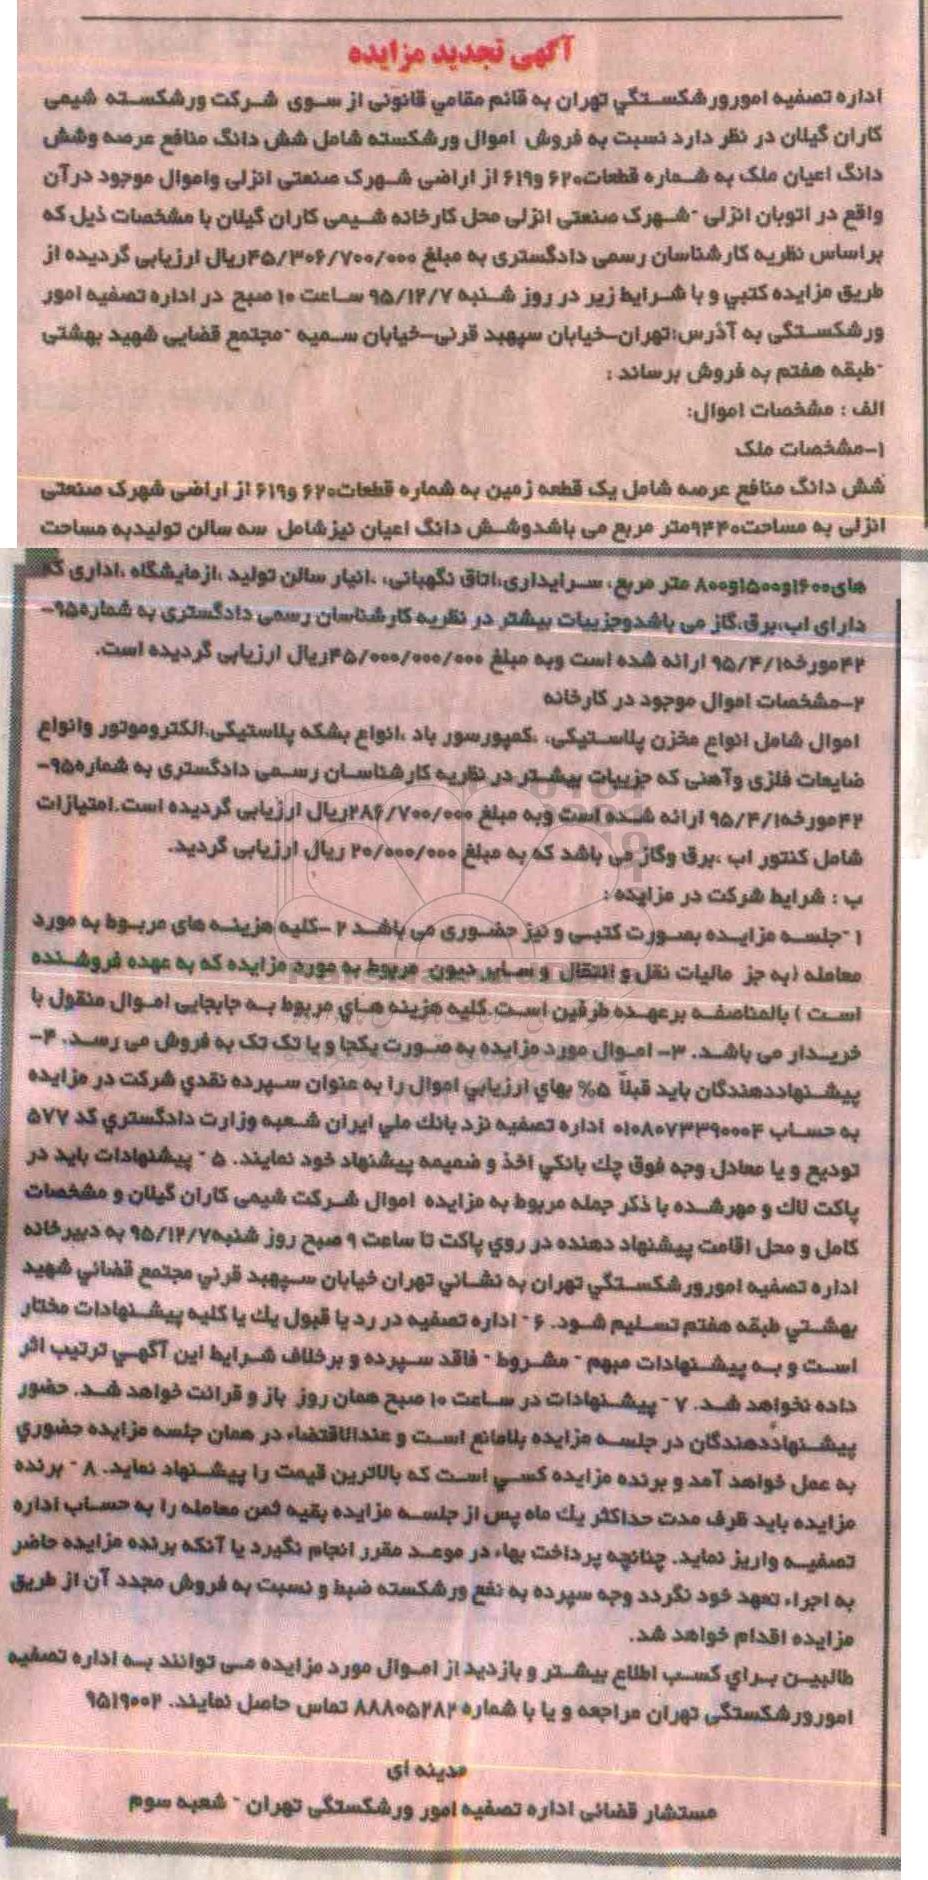 آگهی تجدید مزایده
اداره تصفیه امورورشکستگي تهران به قائم مقامي قانونی از سوی شرکت ورشکسته شیمی
کاران گیلان در نظر دارد نسبت به فروش اموال ورشکسته شامل شش دانگ منافع عرصه وشش
دانگ اعیان ملک به شماره قطعات۶۲۰ و۶۱۹ از اراضی شهرک صنعتی انزلی واموال موجود درآن
واقع در اتوبان انزلی -شهرک صنعتی انزلی محل کارخانه شیمی کاران گیلان با مشخصات ذیل که
براساس نظریه کارشناسان رسمی دادگستری به مبلغ ۴۵/۳۰۶/۷۰۰/۰۰۰ریال ارزیابی گردیده از
طریق مزایده کتبي و با شرایط زیر در روز شنبه ۹۵/۱۲/۷ ساعت ۱۰ صبح در اداره تصفیه امور
ورشکستگی به آذرس:تهران–خیابان سپهبد قرنی–خیابان سمیه -مجتمع قضایی شهید بهشتی
-طبقه هفتم به فروش برساند :
الف : مشخصات اموال:
۱–مشخصات ملک
شش دانگ منافع عرصه شامل یک قطعه زمین به شماره قطعات۶۲۰ و۶۱۹ از اراضی شهرک صنعتی
انزلی به مساحت۹۴۴۰متر مربع می باشدوشش دانگ اعیان نیزشامل سه سالن تولیدبه مساحت
های۱۶۰۰و۱۵۰۰و۸۰۰ متر مربع، سرایداری،اتاق نگهبانی، ،انبار سالن تولید ،ازمایشگاه ،اداری که
دارای اب،برق،گاز می باشدوجزییات بیشتر در نظریه کارشناسان رسمی دادگستری به شماره۹۵–
۴۲مورخه۹۵/۴/۱ ارائه شده است وبه مبلغ ۴۵/۰۰۰/۰۰۰/۰۰۰ریال ارزیابی گردیده است.
۲–مشخصات اموال موجود در کارخانه
اموال شامل انواع مخزن پلاستیکی، ،کمپورسور باد ،انواع بشکه پلاستیکی،الکتروموتور وانواع
ضایعات فلزی وآهنی که جزییات بیشتر در نظریه کارشناسان رسمی دادگستری به شماره۹۵–
۴۲مورخه۹۵/۴/۱ ارائه شده است وبه مبلغ ۲۸۶/۷۰۰/۰۰۰ریال ارزیابی گردیده است.امتیازات
شامل کنتور اب ،برق وگاز می باشد که به مبلغ ۲۰/۰۰۰/۰۰۰ ریال ارزیابی گردید.
ب : شرایط شرکت در مزایده :
۱ -جلسه مزایده بصورت کتبی و نیز حضوری می باشد ۲ –کلیه هزینه های مربوط به مورد
معامله (به جز مالیات نقل و انتقال و سایر دیون مربوط به مورد مزایده که به عهده فروشنده
است ) بالمناصفه برعهده طرفین است.کلیه هزینه هاي مربوط به جابجایی اموال منقول با
خریدار می باشد. ۳– اموال مورد مزایده به صورت یکجا و یا تک تک به فروش می رسد. ۴–
پیشنهاددهندگان باید قبلاً ۵% بهاي ارزیابي اموال را به عنوان سپرده نقدي شرکت در مزایده
به حساب ۰۱۰۸۰۷۳۳۹۰۰۰۴ اداره تصفیه نزد بانك ملي ایران شعبه وزارت دادگستري کد ۵۷۷
تودیع و یا معادل وجه فوق چك بانکي اخذ و ضمیمه پیشنهاد خود نمایند. ۵ - پیشنهادات باید در
پاکت لاك و مهرشده با ذکر جمله مربوط به مزایده اموال شرکت شیمی کاران گیلان و مشخصات
کامل و محل اقامت پیشنهاد دهنده در روي پاکت تا ساعت ۹ صبح روز شنبه۹۵/۱۲/۷ به دبیرخانه
اداره تصفیه امورورشکستگي تهران به نشاني تهران خیابان سپهبد قرني مجتمع قضائي شهید
بهشتي طبقه هفتم تسلیم شود. ۶ - اداره تصفیه در رد یا قبول یك یا کلیه پیشنهادات مختار
است و به پیشنهادات مبهم - مشروط - فاقد سپرده و برخلاف شرایط این آگهي ترتیب اثر
داده نخواهد شد. ۷ - پیشنهادات در ساعت ۱۰ صبح همان روز باز و قرائت خواهد شد. حضور
پیشنهاددهندگان در جلسه مزایده بلامانع است و عندالاقتضاء در همان جلسه مزایده حضوري
به عمل خواهد آمد و برنده مزایده کسي است که بالاترین قیمت را پیشنهاد نماید. ۸ - برنده
مزایده باید ظرف مدت حداکثر یك ماه پس از جلسه مزایده بقیه ثمن معامله را به حساب اداره
تصفیه واریز نماید. چنانچه پرداخت بهاء در موعد مقرر انجام نگیرد یا آنکه برنده مزایده حاضر
به اجراء تعهد خود نگردد وجه سپرده به نفع ورشکسته ضبط و نسبت به فروش مجدد آن از طریق
مزایده اقدام خواهد شد.
طالبین براي کسب اطلاع بیشتر و بازدید از اموال مورد مزایده می توانند به اداره تصفیه
امورورشکستگی تهران مراجعه و یا با شماره ۸۸۸۰۵۲۸۲ تماس حاصل نمایند. ۹۵۱۹۰۰۲
مدینه ای
مستشار قضائی اداره تصفیه امور ورشکستگی تهران - شعبه سوم